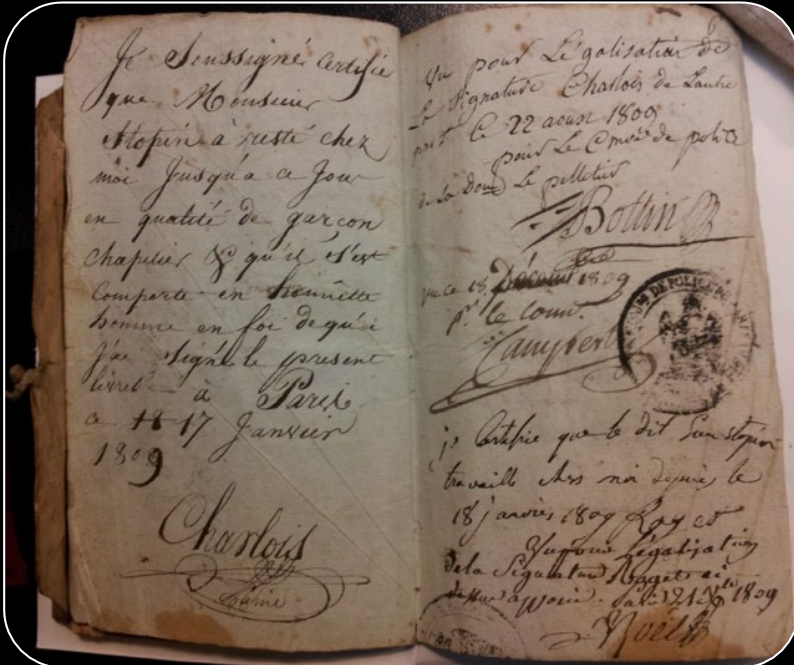 Je Soussigné Certifie
que Monsieur
Stopin à resté chez
moi Jusqu'a ce Jour
en qualité de garçon
chapelier & qu'il s'est
comporté en honnette
homme en foi de quoi
j'ai signé le present
livret à Paris
ce 18 17 Janvier
1809
Charlois
Vu pour Légalisation de
la Signature Charlois de Lautre
part Ce 22 aoust 1809
pour Le Cmre de police
de la Don Le pelletier
Bottin
vu ce 18 1809
pr le com.
je Certifie que le dit
travaill chés moi depuis le
18 janvier 1809 Roget
Vu pour Légalisation
de la Signature Roget
1809
Noël